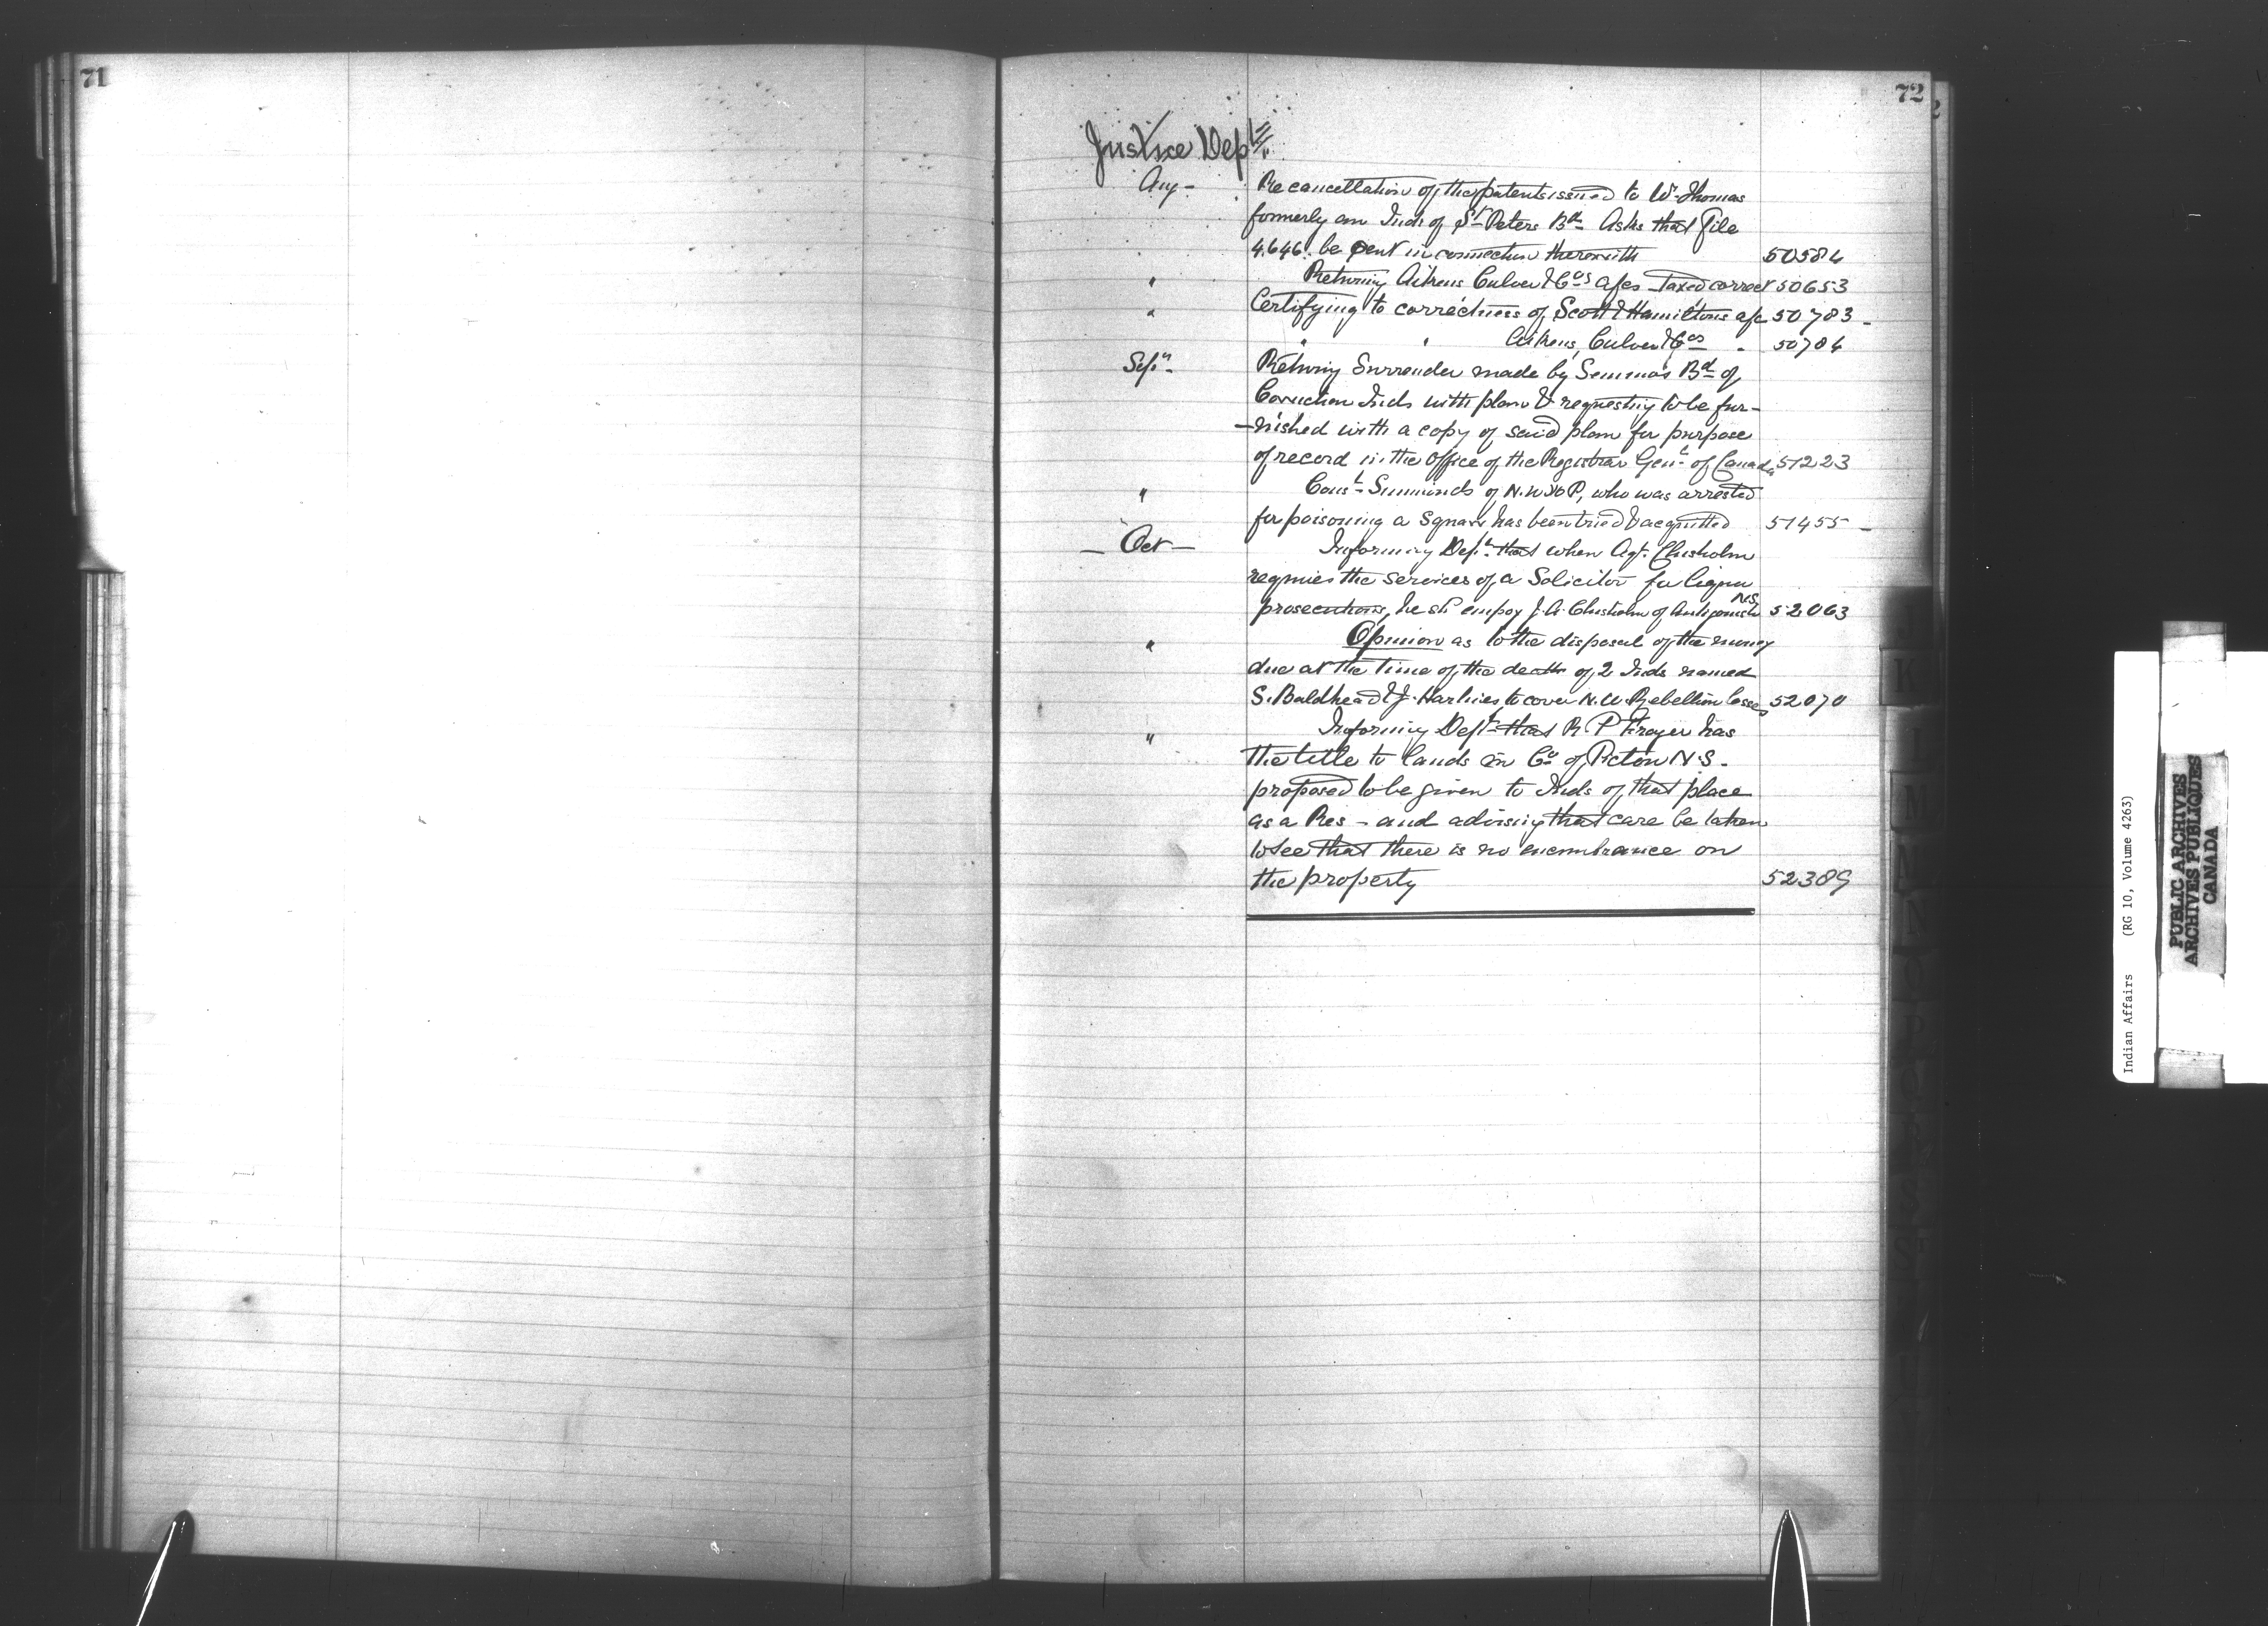 71
72
Justice Dept.
Aug - Re cancellation of the patents issued to Wm Thomas
formerly an Ind. of St Peters Bd. Asks that File
4.646. be sent in connection therewith 50584
" Returning Aikens Culver & Cos a/cs taxed correct 50653
" Certifying to correctness of Scott & Hamiltons a/c 50783 -
" " Aikens, Culver & Cos " 50784
Sept. Returng Surrender made by Semmas Bd of
Cowichan Inds with plan & requesting to be fur-
-nished with a copy of said plan for purpose
of record in the Office of the Registrar Genl. of Canada 51223
" Const. Simmonds of N.W.M.P, who was arrested
for poisoning a Squaw has been tried & acquitted 51455 -
- Oct - Informing Dept. that when Agt. Chisholm
requires the services of a Solicitor for liquor
prosecutions, he shd employ J.A. Chisholm of Antigonish N.S. 52063
" Opinion as to the disposal of the money
due at the time of the death of 2 Inds named
S. Baldhead & J. to cover N.W. Rebellion losses 52070
" Informing Dept. that R. P. Frazer has
the title to lands in Co. of Pictou N.S.
proposed to be given to Inds of that place
as a Res - and advising that care be taken
to see that there is no encumbrance on
the property 52389
K
M
N
O
P
S
Indian Affairs (RG 10, Volume 4263)
PUBLIC ARCHIVES
ARCHIVES PUBLIQUES
CANADA